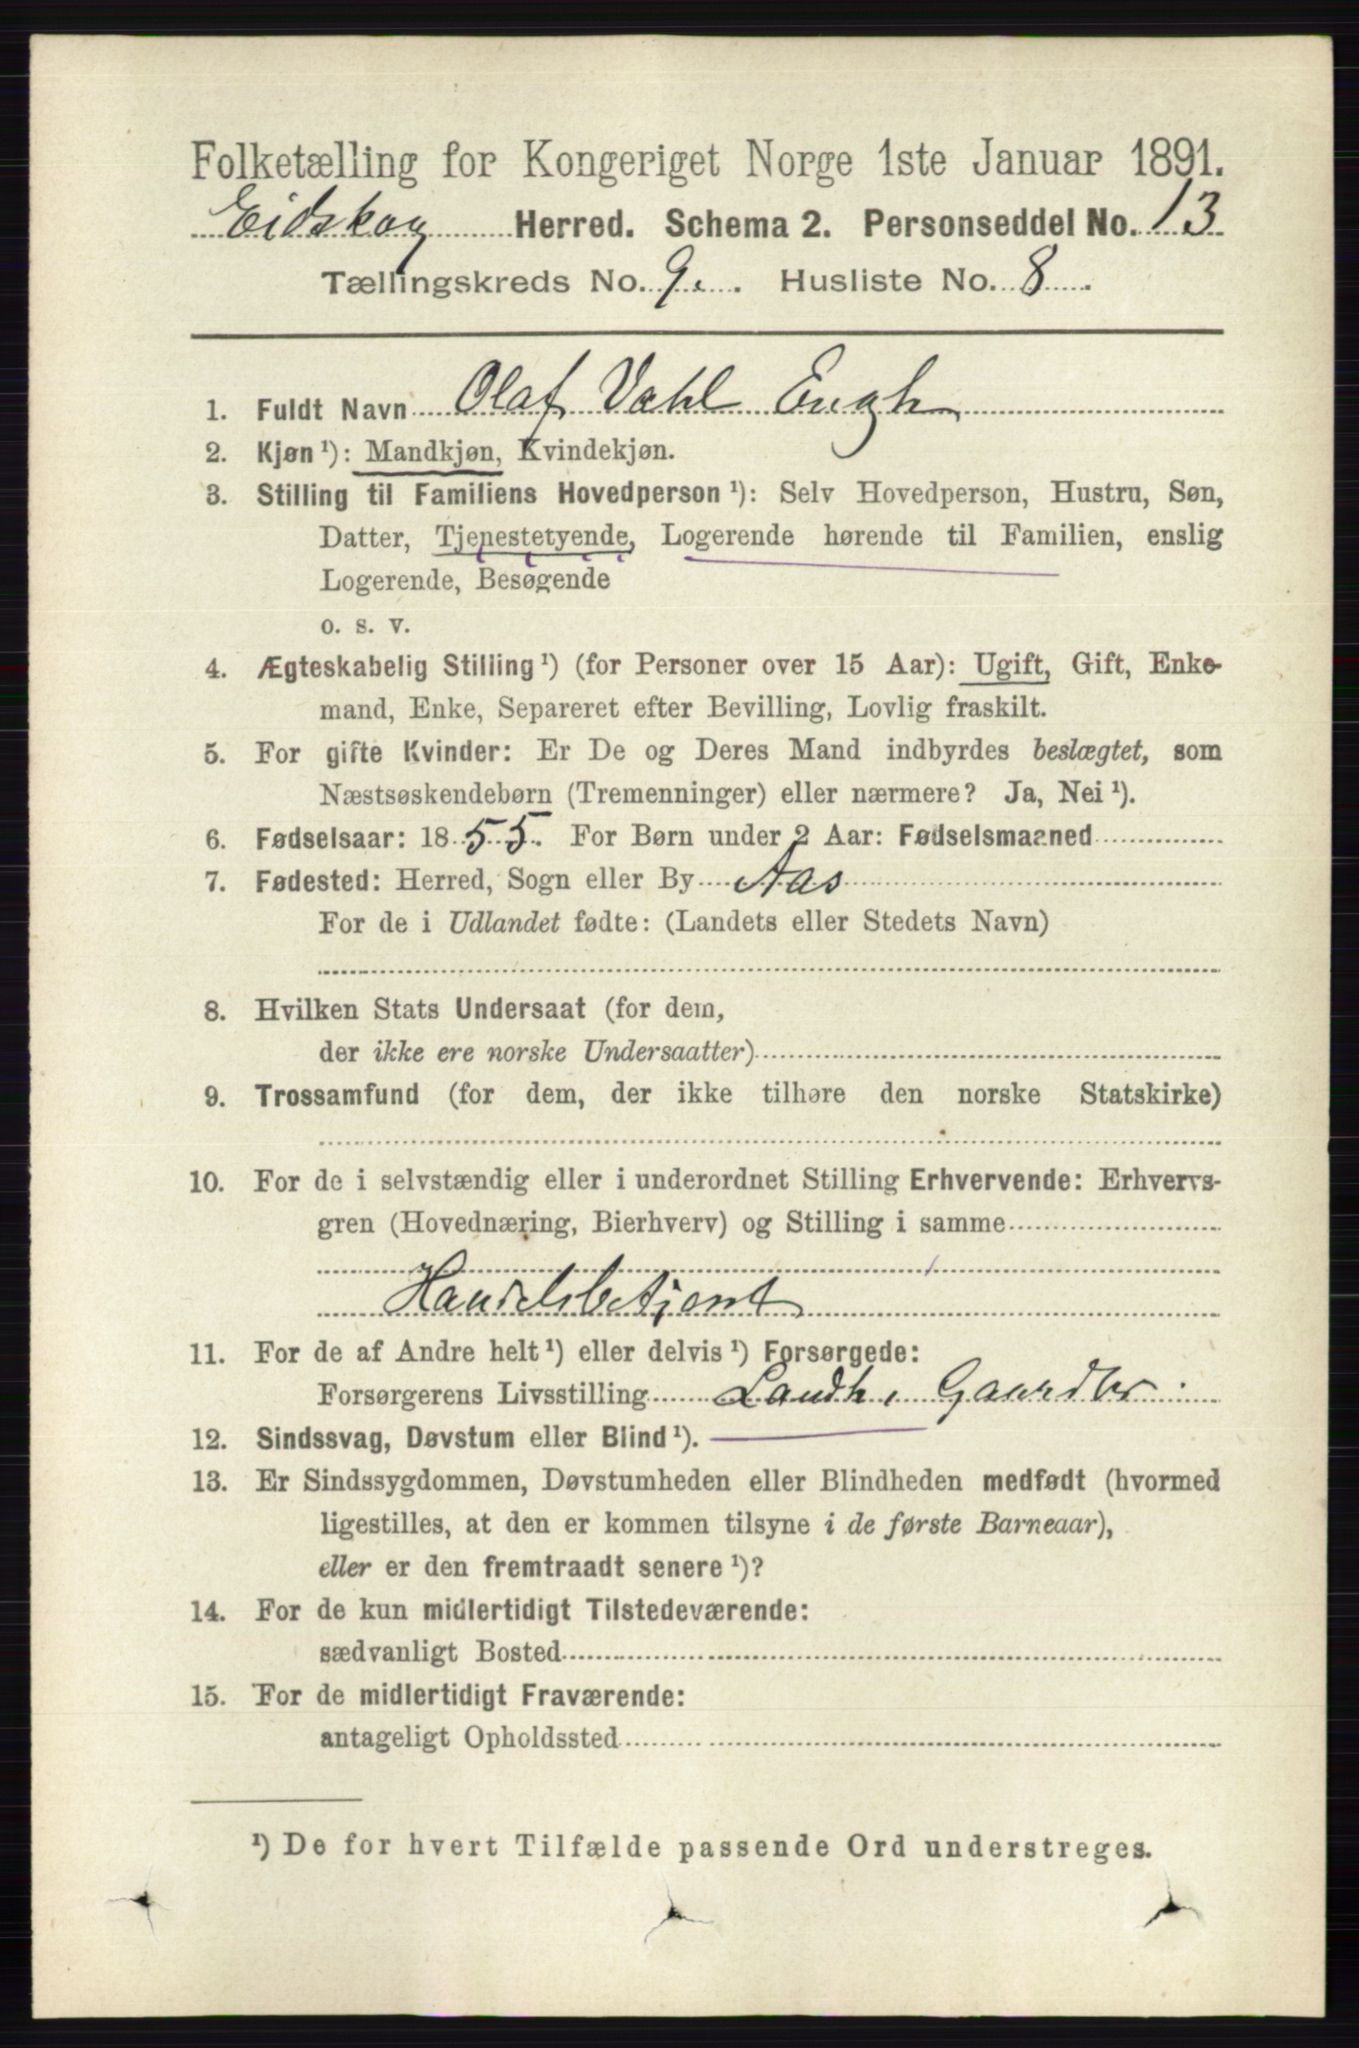 Folketælling for Kongeriget Norge 1ste Januar 1891.
Eidskog Herred. Schema 2. Personseddel No. 13
Tællingskreds No. 9. Husliste No. 8.
1. Fuldt Navn Olaf Vahl Engh
2. Kjøn ¹): Mandkjøn, Kvindekjøn.
3. Stilling til Familiens Hovedperson ¹): Selv Hovedperson, Hustru, Søn,
Datter, Tjenestetyende, Logerende hørende til Familien, enslig
Logerende, Besøgende
o. s. v.
4. Ægteskabelig Stilling ¹) (for Personer over 15 Aar): Ugift, Gift, Enke-
mand, Enke, Separeret efter Bevilling, Lovlig fraskilt.
5. For gifte Kvinder: Er De og Deres Mand indbyrdes beslægtet, som
Næstsøskendebørn (Tremenninger) eller nærmere? Ja, Nei ¹).
6. Fødselsaar: 1855. For Børn under 2 Aar: Fødselsmaaned
7. Fødested: Herred, Sogn eller By Aas
For de i Udlandet fødte: (Landets eller Stedets Navn)
8. Hvilken Stats Undersaat (for dem,
der ikke ere norske Undersaatter)
9. Trossamfund (for dem, der ikke tilhøre den norske Statskirke)
10. For de i selvstændig eller i underordnet Stilling Erhvervende: Erhvervs-
gren (Hovednæring, Bierhverv) og Stilling i samme
Handelsbetjent
11. For de af Andre helt ¹) eller delvis ¹) Forsørgede:
Forsørgerens Livsstilling Landh. Gaardbr.
12. Sindssvag, Døvstum eller Blind ¹).
13. Er Sindssygdommen, Døvstumheden eller Blindheden medfødt (hvormed
ligestilles, at den er kommen tilsyne i de første Barneaar),
eller er den fremtraadt senere ¹)?
14. For de kun midlertidigt Tilstedeværende:
sædvanligt Bosted
15. For de midlertidigt Fraværende:
antageligt Opholdssted
¹) De for hvert Tilfælde passende Ord understreges.